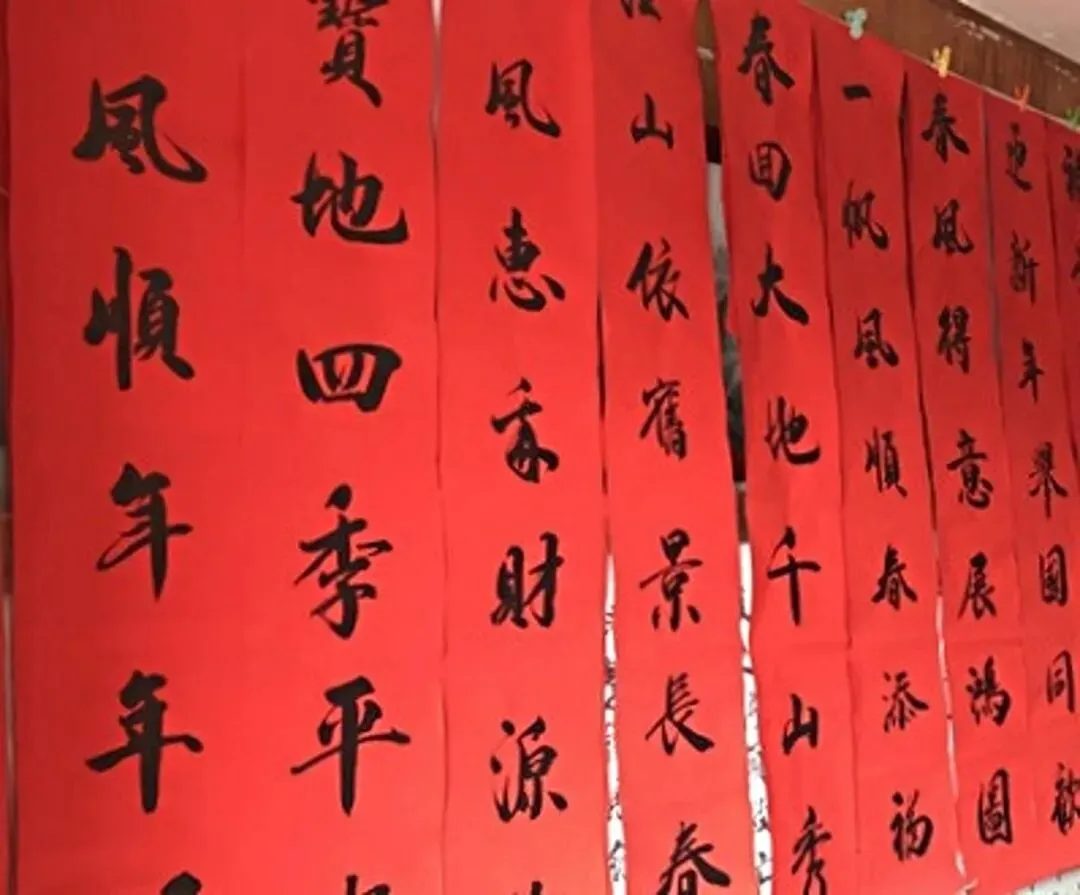 迎新年舉國同歡
春風得意展鴻圖
一帆風順春添福
春回大地千山秀
山依舊景長春
風惠家財源
寶地四季平
風順年年